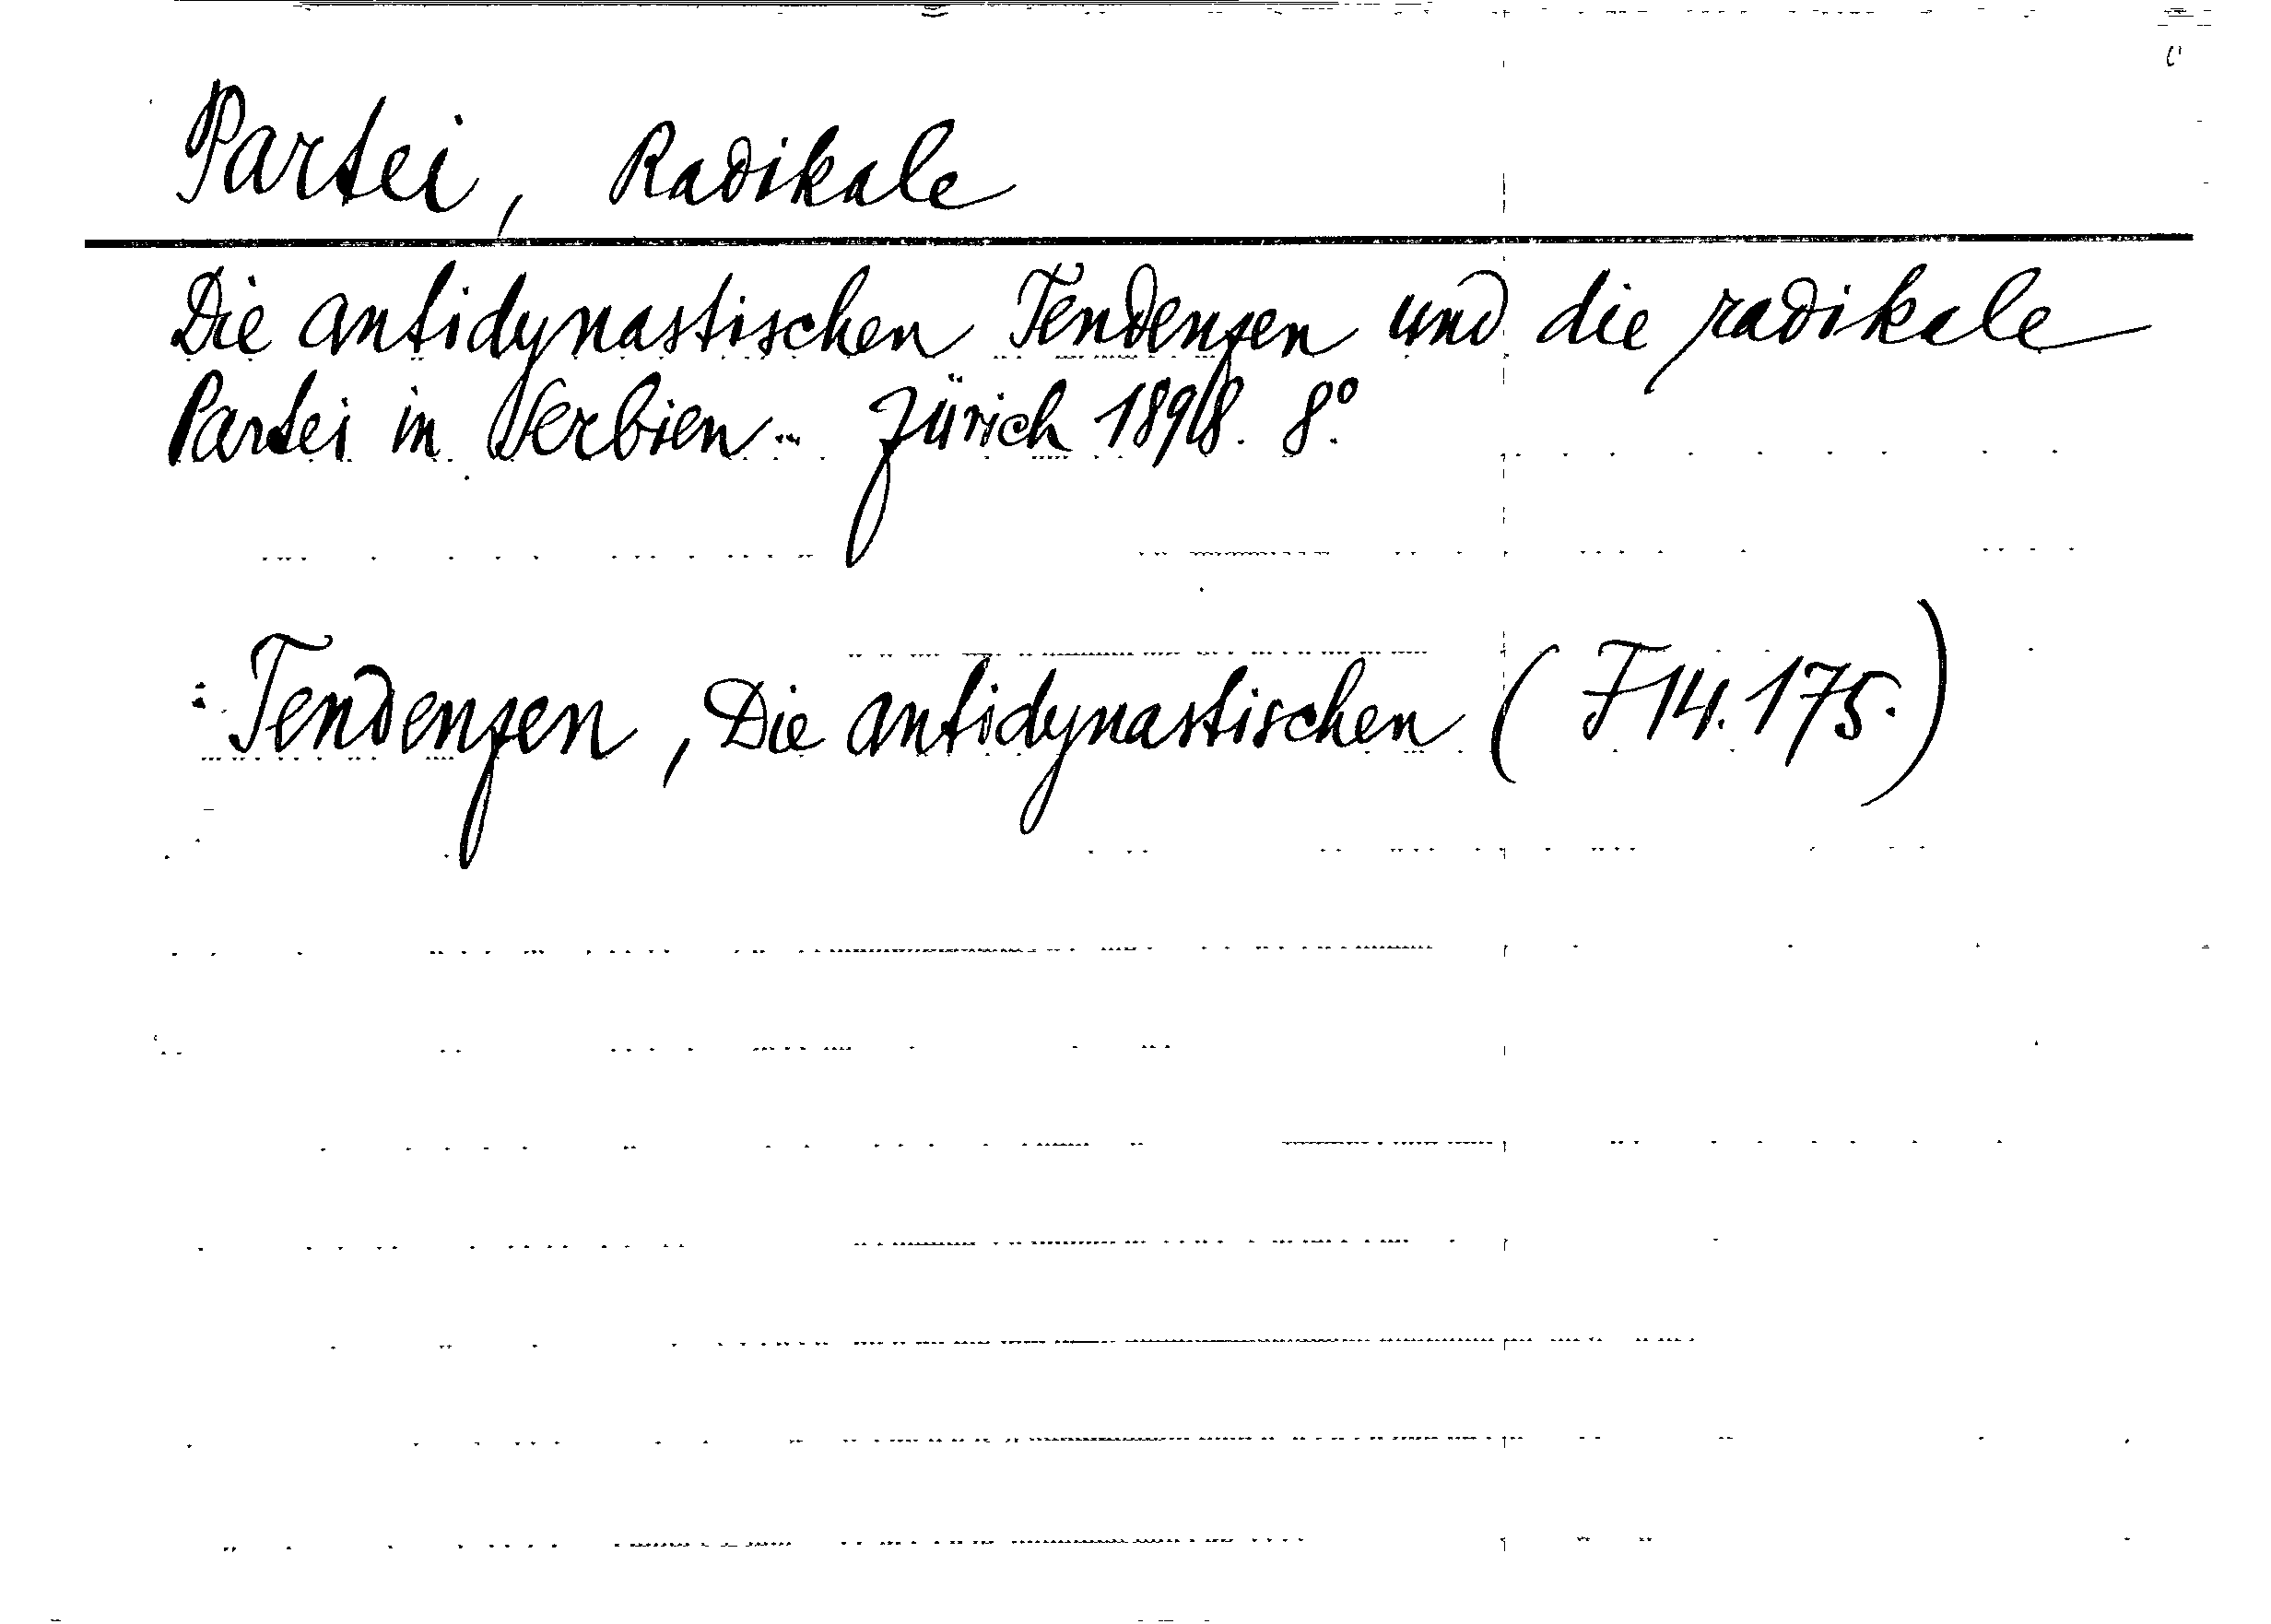 Partei, Radikale
Die antidynastischen Tendenzen und die radikale
Partei in Serbien... Zürich 1898. 8°.
Tendenzen, Die antidynastischen (F 14. 175.)